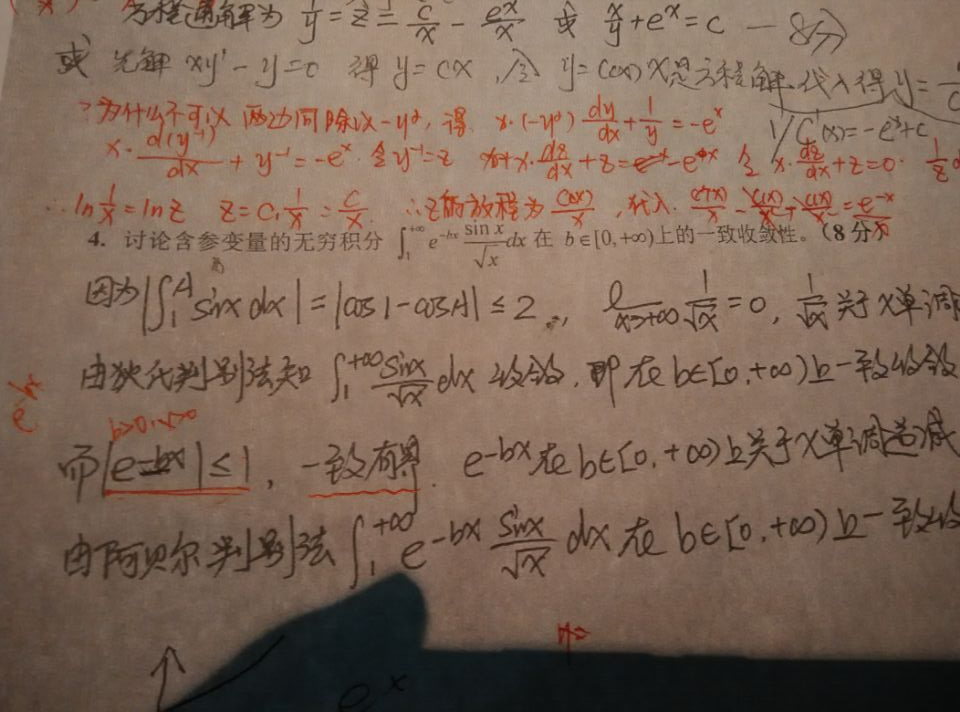 方程通解为 1/y = z = c/x - e^x/x 或 x/y + e^x = c — 8分)
或 先解 xy' - y = 0 得 y = cx, 令 y = c(x) x 是方程解, 代入得 y =
? 为什么不可以 两边同除以 -y², 得 x·(-y²) dy/dx + 1/y = -e^x
1/ C(x) = -e^x + c
x· d(y⁻¹)/dx + y⁻¹ = -e^x 令 y⁻¹ = z x· dz/dx + z = -e^x 令 x· dz/dx + z = 0. 1/z d
∴ ln 1/x = ln z z = C· 1/x = C/x. ∴ z的方程为 C(x)/x, 代入.
4. 讨论含参变量的无穷积分 ∫₁^{+∞} e^{-bx} sin x/√x dx 在 b∈[0,+∞)上的一致收敛性。(8 分)
因为 |∫₁^A sinx dx| = |cos1 - cosA| ≤ 2, l x→+∞ 1/√x = 0, 1/√x 关于 x 单调
由狄氏判别法知 ∫₁^{+∞} sinx/√x dx 收敛. 即 在 b∈[0,+∞)上一致收敛
e^{-bx}
b>0, x>0
而 |e^{-bx}| ≤ 1, 一致有界. e^{-bx} 在 b∈[0,+∞)上关于 x 单调递减
由阿贝尔判别法 ∫₁^{+∞} e^{-bx} sinx/√x dx 在 b∈[0,+∞)上一致收
e^x